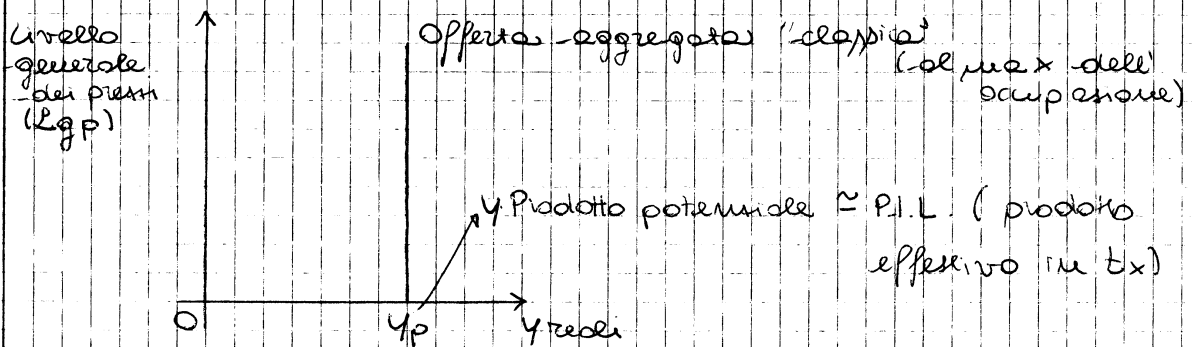 Livello
generale
dei prezzi
(Lgp)
Offerta aggregata "classica"
(al max dell'
occupazione)
Y Prodotto potenziale ≃ P.I.L. ( prodotto
effettivo in tx)
O
Yp
Y reali